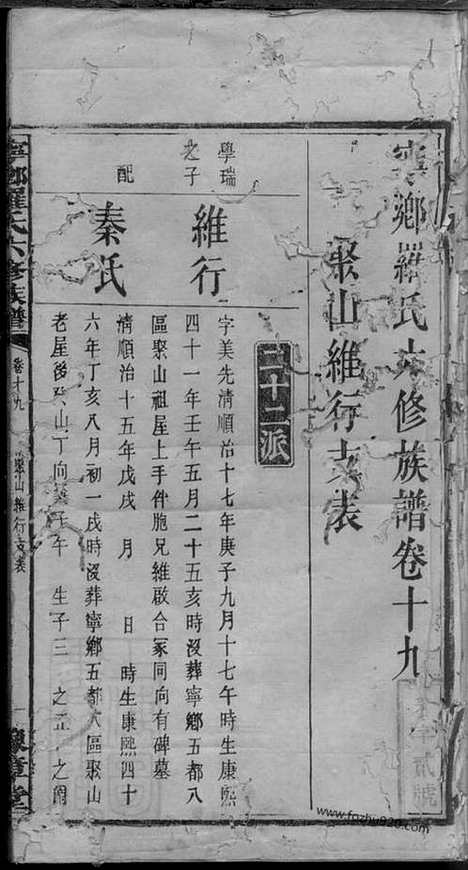 寧鄉羅氏六修族譜卷十九
聚山維行支表
二十二派
學瑞之子
維行
字美先清順治十七年庚子九月十七午時生康熙
四十一年壬午五月二十五亥時沒葬寧鄉五都八
區聚山祖屋上手伴胞兄維啟合冢同向有碑墓
配
秦氏
清順治十五年戊戌 月 日 時生康熙四十
六年丁亥八月初一戌時沒葬寧鄉五都八區聚山
老屋後癸山丁向 子午 生子三 之 之
寧鄉羅氏六修族譜
卷十九
聚山維行支表
一
豫章堂
字貳號
www.fozhu920.com